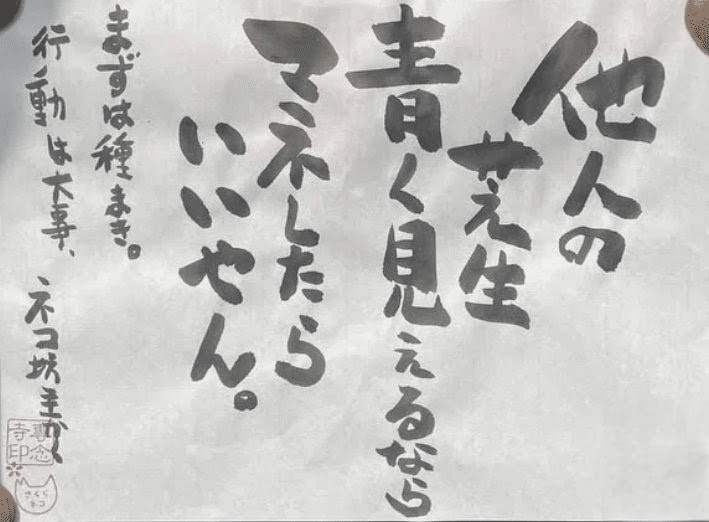 他人の
芝生
青く見えるなら
マネしたら
いいやん。
まずは種まき。
行動は大事、
ネコ坊主かく
専念
寺印
さくら
ネコ